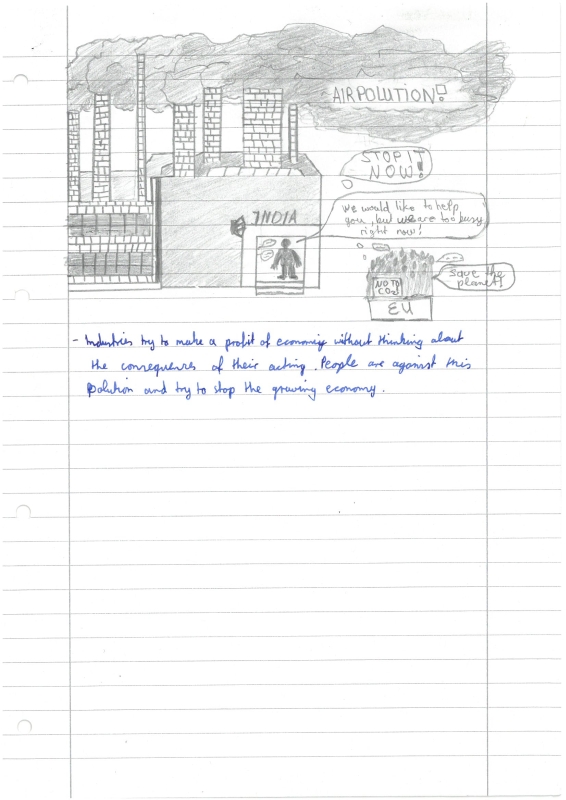 AIRPOLUTION!
STOP IT
NOW!
We would like to help
you, but we are too busy
right now!
INDIA
Save the
planet!
NO TO
CO₂!
EU
- Industries try to make a profit of economiy without thinking about
the consequences of their acting. People are against this
polution and try to stop the growing economy.